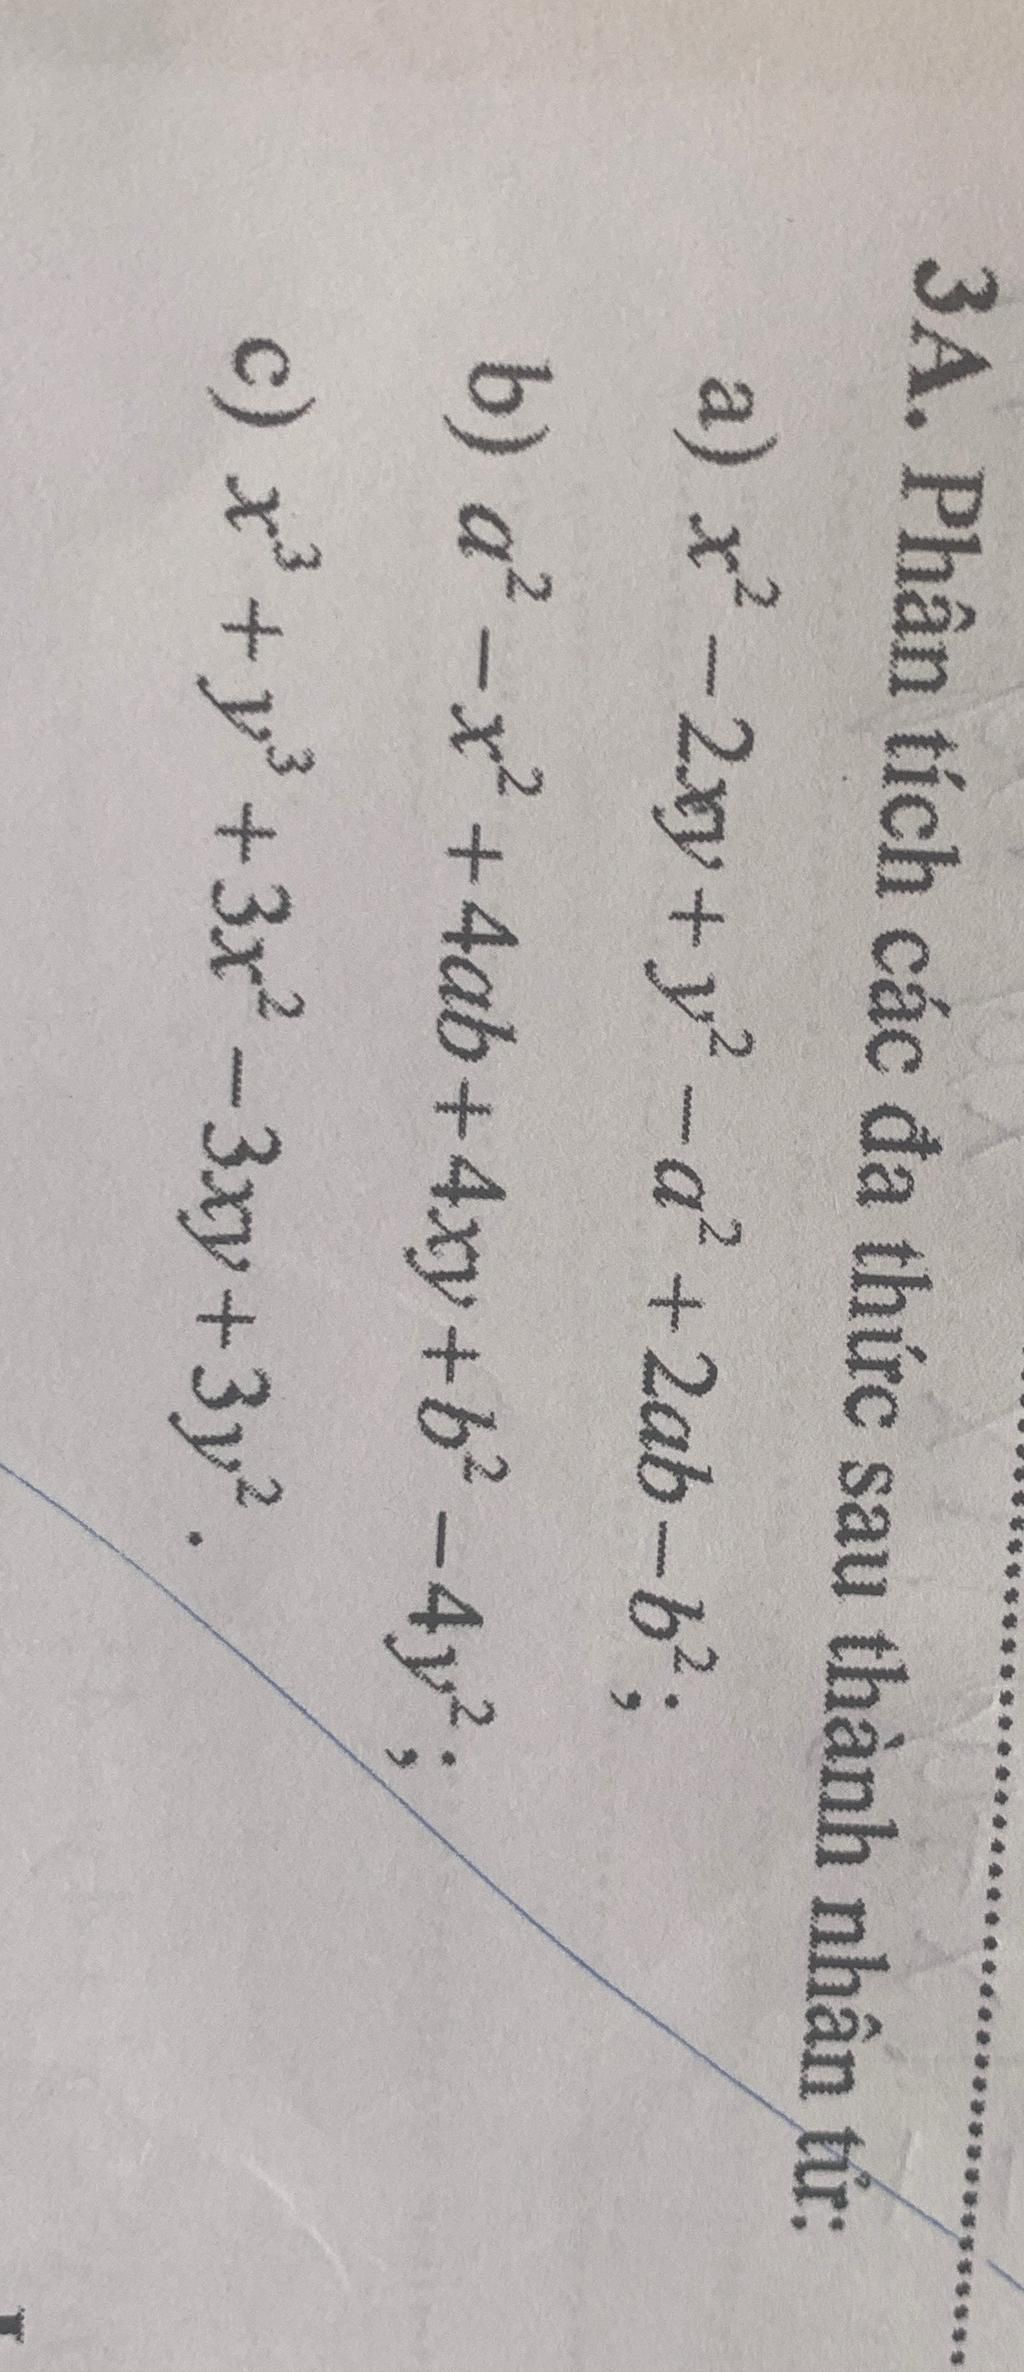 3A. Phân tích các đa thức sau thành nhân tử:
a) x² − 2xy + y² − a² + 2ab − b²;
b) a² − x² + 4ab + 4xy + b² − 4y²;
c) x³ + y³ + 3x² − 3xy + 3y².